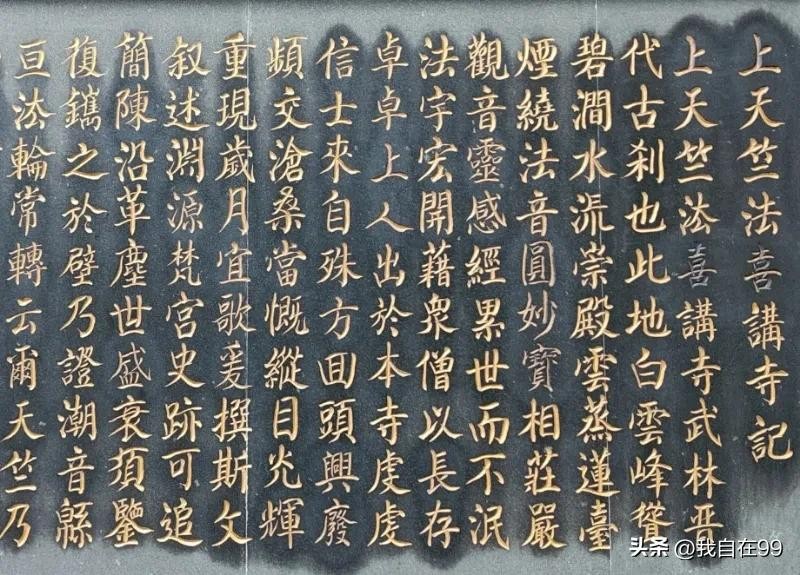 上天竺法喜講寺記
上天竺法喜講寺武林晋
代古刹也此地白雲峰聳
碧澗水流崇殿雲蒸蓮臺
煙繞法音圓妙寶相莊嚴
觀音靈感經累世而不泯
法宇宏開藉衆僧以長存
卓卓上人出於本寺虔虔
信士來自殊方回頭興廢
頻交滄桑當慨縱目光輝
重現歲月宜歌爰撰斯文
叙述淵源梵宫史跡可追
簡陳沿革塵世盛衰須鑒
復鐫之於壁乃證潮音緜
亘法輪常轉云爾天竺乃
头条 @我自在99